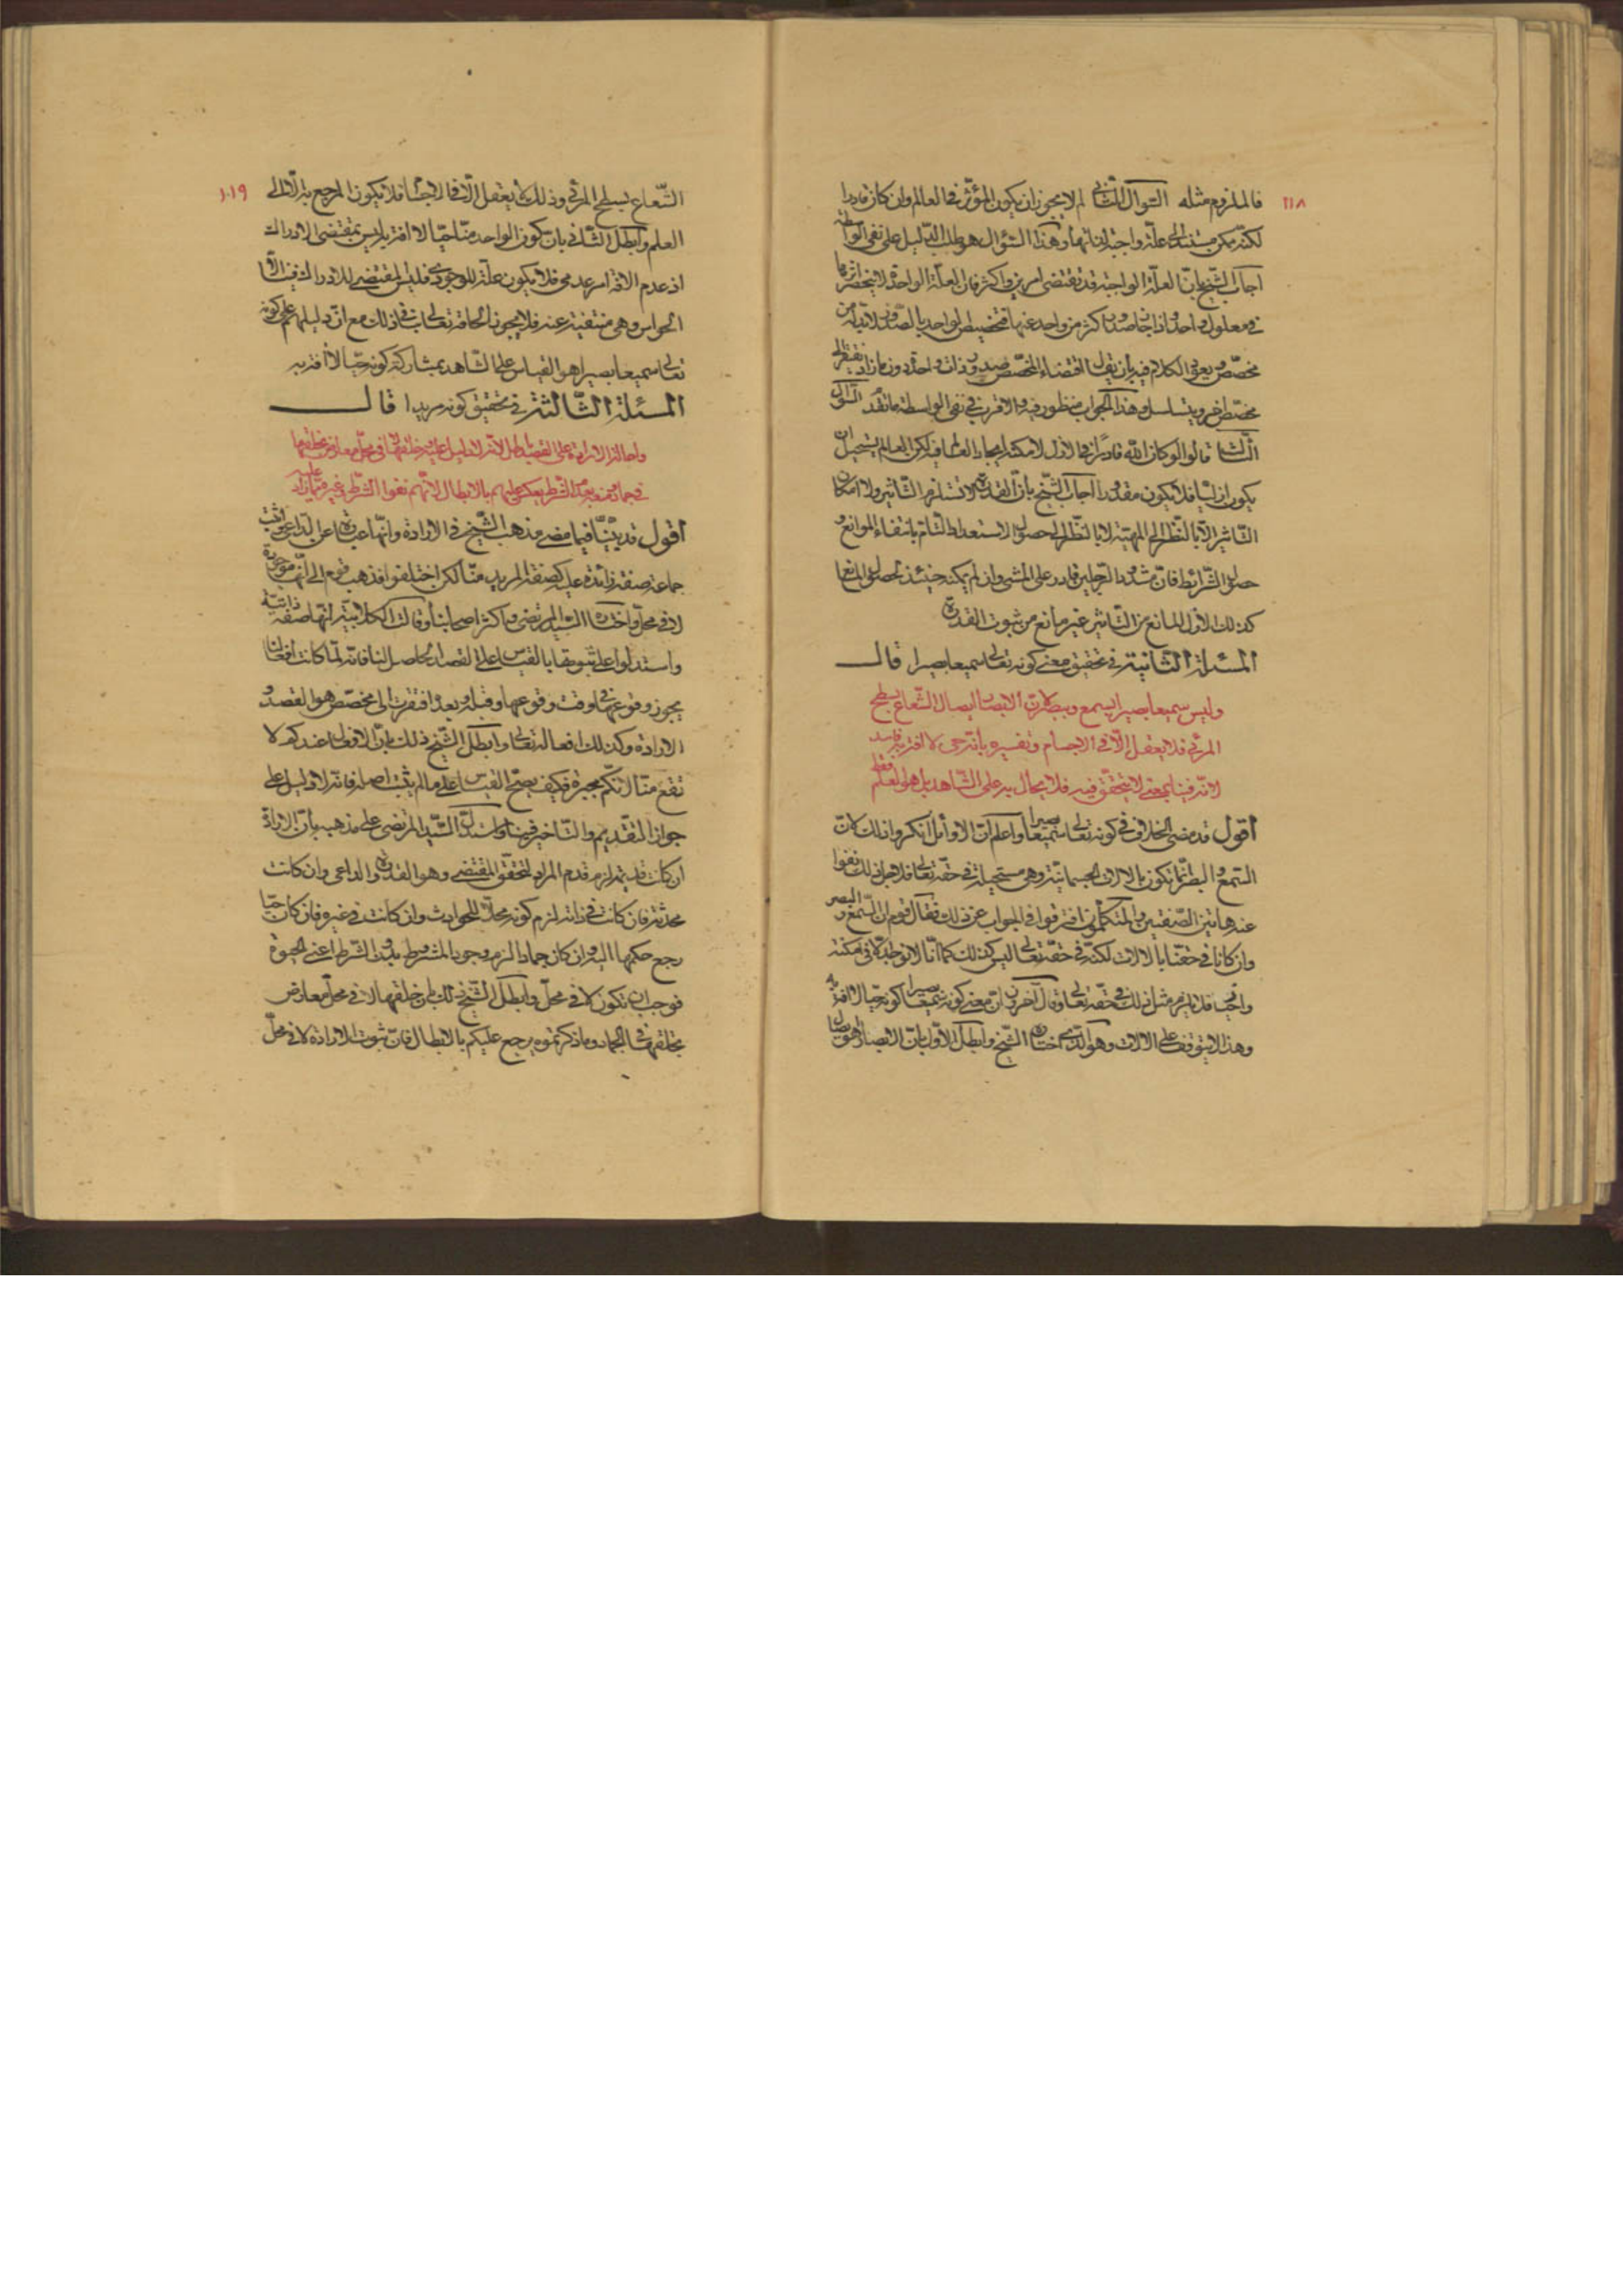 ١١٨
فالملزوم مثله السؤال الثاني لم لا يجوز ان يكون المؤثر في العالم وان كان قادرا
لكنه يكن مستندا الى علة واجبة لذاتها وهذا السؤال هو طلب الدليل على نفي الواسطة
اجاب الشيخ بان العلة الواجبة قد تقتضي امرين واكثر فان العلة الواحدة لا ينحصر اثرها
في معلول واحد واذا جاز صدور اكثر من واحد عنها فتخصيص الواحد بالصدور لا بد له من
مخصص ويعود الكلام فيه بان يقال اقتضاء المخصص صدور ذات واحدة دون ما زاد يفتقر الى
مخصص اخر ويتسلسل وهذا الجواب منظور فيه والاقرب في نفي الواسطة ما تقدم السؤال
الثالث قالوا لو كان الله قادرا في الازل لامكنه ايجاد العالم فيه لكن العالم يستحيل ان
يكون ازليا فلا يكون مقدورا اجاب الشيخ بان القدرة لا تستلزم التاثير ولا امكان
التاثير الا بالنظر الى المهية لا بالنظر الى حصول الاستعداد التام بانتفاء الموانع و
حصول الشرائط فان مشدود الرجلين قادر على المشي وان لم يمكنه حينئذ لحصول المانع
كذلك الازل المانع من التاثير غير مانع من ثبوت القدرة
المسئلة الثانية في تحقيق معنى كونه تعالى سميعا بصيرا قال
وليس سميعا بصيرا بسمع وبصر لان الابصار ايصال الشعاع بسطح
المرئي فلا يعقل الا في الاجسام وتفسيره بانه حي لا افة به فاسد
لانه فينا بمعنى لا يتحقق فيه فلا يحال به على الشاهد بل هو العلم فقط
اقول قد مضى الخلاف في كونه تعالى سميعا بصيرا واعلم ان الاوائل انكروا ذلك لان
السمع والبصر انما تكون بالالات الجسمانية وهي مستحيلة في حقه تعالى فلاجل ذلك نفوا
عنه هاتين الصفتين والمتكلمون افترقوا في الجواب عن ذلك فقال قوم ان السمع والبصر
وان كانا في حقنا بالالات لكنه في حقه تعالى ليس كذلك كما انا لا نوجد الا في امكنة
واجب فلا يلزم مثل ذلك في حقه تعالى وقال آخرون ان معنى كونه سميعا بصيرا كونه حيا لا افة به
وهذا لا يتوقف على الالات وهو الذي اختاره الشيخ وابطل الاول بان الابصار هو ايصال
١٠١٩
الشعاع بسطح المرئي وذلك لا يعقل الا في الاجسام فلا يكون المرجع به الا الى
العلم وابطل الثاني بان كون الواحد منا حيا لا افة به ليس بمقتضى الادراك
اذ عدم الافة امر عدمي فلا يكون علة للوجودي فليس المقتضي للادراك فينا الا
الحواس وهي منتفية عنه فلا يجوز الحاقه تعالى بنا في ذلك مع ان دليلهم على كونه
تعالى سميعا بصيرا هو القياس على الشاهد بمشاركة كونه حيا لا افة به
المسئلة الثالثة في تحقيق كونه مريدا قال
واحالة الارادة على القصد باطل لانه لا دليل عليه وخلقها لا في محل معارض بخلقها
في جماد ونفيه بعدم الشرط يعكس عليهم بالابطال لانهم نفوا الشرط وغيره فيما زاد عليه
اقول قد بينا فيما مضى مذهب الشيخ في الارادة وانها عبارة عن الداعي واثبت
جماعة صفة زائدة عليه كصفة المريد منا لكن اختلفوا فذهب قوم الى انها موجودة
لا في محل واختاره السيد المرتضى واكثر اصحابنا وقالت الكلابية انها صفة ذاتية
واستدلوا على ثبوتها بالقياس على القصد الحاصل لنا فانه لما كانت افعالنا
يجوز وقوعها في وقت وقوعها وقبله وبعده افتقرت الى مخصص هو القصد و
الارادة وكذلك افعاله تعالى وابطل الشيخ ذلك بان الافعال عندكم لا
تقع منا لانكم مجبرة فكيف يصح القياس على ما لم يثبت اصله فانه لا دليل على
جواز التقديم والتاخير فيها واستدل السيد المرتضى على مذهبه بان الارادة
ان كانت قديمة لزم قدم المراد لتحقق المقتضي وهو القدرة والداعي وان كانت
محدثة فان كانت في ذاته لزم كونه محلا للحوادث وان كانت في غيره فان كان حيا
رجع حكمها اليه وان كان جمادا لزم وجود المشروط بدون الشرط اعني الحيوة
فوجب ان تكون لا في محل وابطل الشيخ ذلك بان خلقها لا في محل معارض
بخلقها في الجماد وما ذكرتموه يرجع عليكم بالابطال فان ثبوت الارادة لا في محل